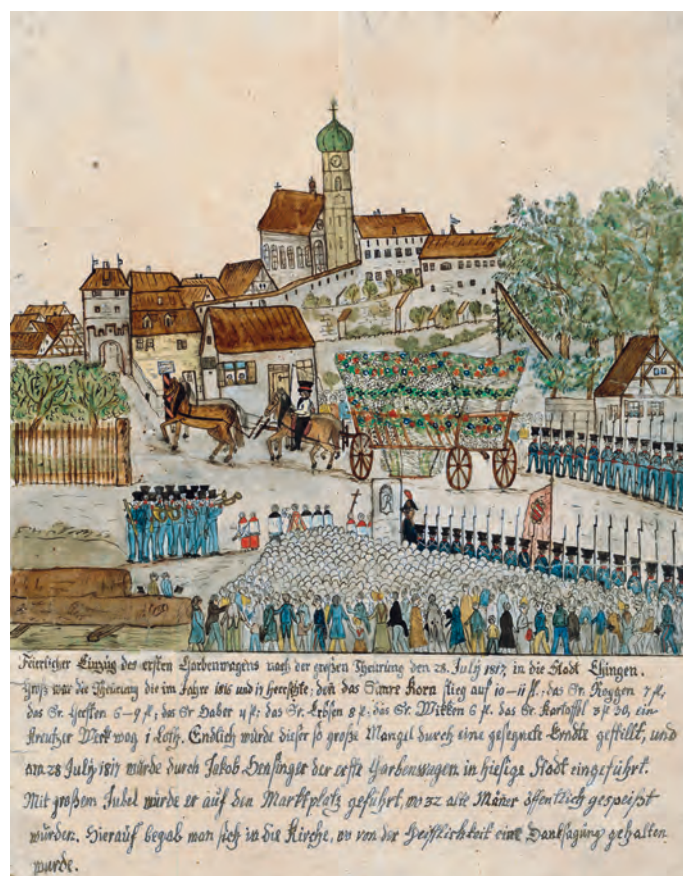 Feierlicher Einzug des ersten Garbenwagens nach der großen Theurung den 28. July 1817, in die Stadt Ehingen.
Groß war die Theurung die im Jahre 1816 und 17 herrschte; den das Simre Korn stieg auf 10–11 fl.; das Sr. Roggen 7 fl,
das Sr. Gersten 6–9 fl; das Sr Haber 4 fl; das Sr. Erbsen 8 fl; das Sr. Wikken 6 fl. das Sr. Kartoffel 3 fl 30, ein
Kreutzer Wek wog 1 Loth. Endlich wurde dieser so große Mangel durch eine gesegnete Erndte gestillt, und
am 28 July 1817 wurde durch Jakob der erste Garbenwagen in hiesige Stadt eingeführt.
Mit großem Jubel wurde er auf den Marktplatz geführt, wo 32 alte Mäner öffentlich gespeißt
wurden. Hierauf begab man sich in die Kirche, wo von der Geistlichkeit eine Danksagung gehalten
wurde.